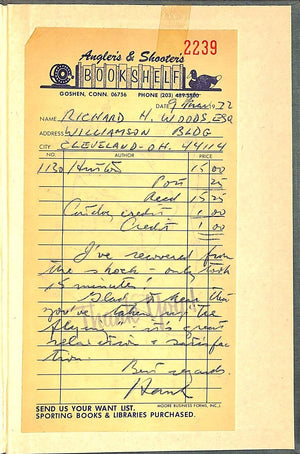 2239
Angler's & Shooter's
BOOKSHELF
GOSHEN, CONN. 06756 PHONE (203)
DATE 9 19 72
NAME RICHARD H. WOODS, ESQ
ADDRESS WILLIAMSON BLDG
CITY CLEVELAND-OH. 44114
NO. AUTHOR PRICE
1130 15 00
Post 25
15 25
credit 1 00
Credit 1 00
I've recovered from
the shock - only took
15 minutes!
Glad to hear that
you've taken up "tie
flying" - its great
relaxation & satisfac
tion.
Thank You!
Best regards.
Hank
MOORE BUSINESS FORMS, INC.
SEND US YOUR WANT LIST.
SPORTING BOOKS & LIBRARIES PURCHASED.